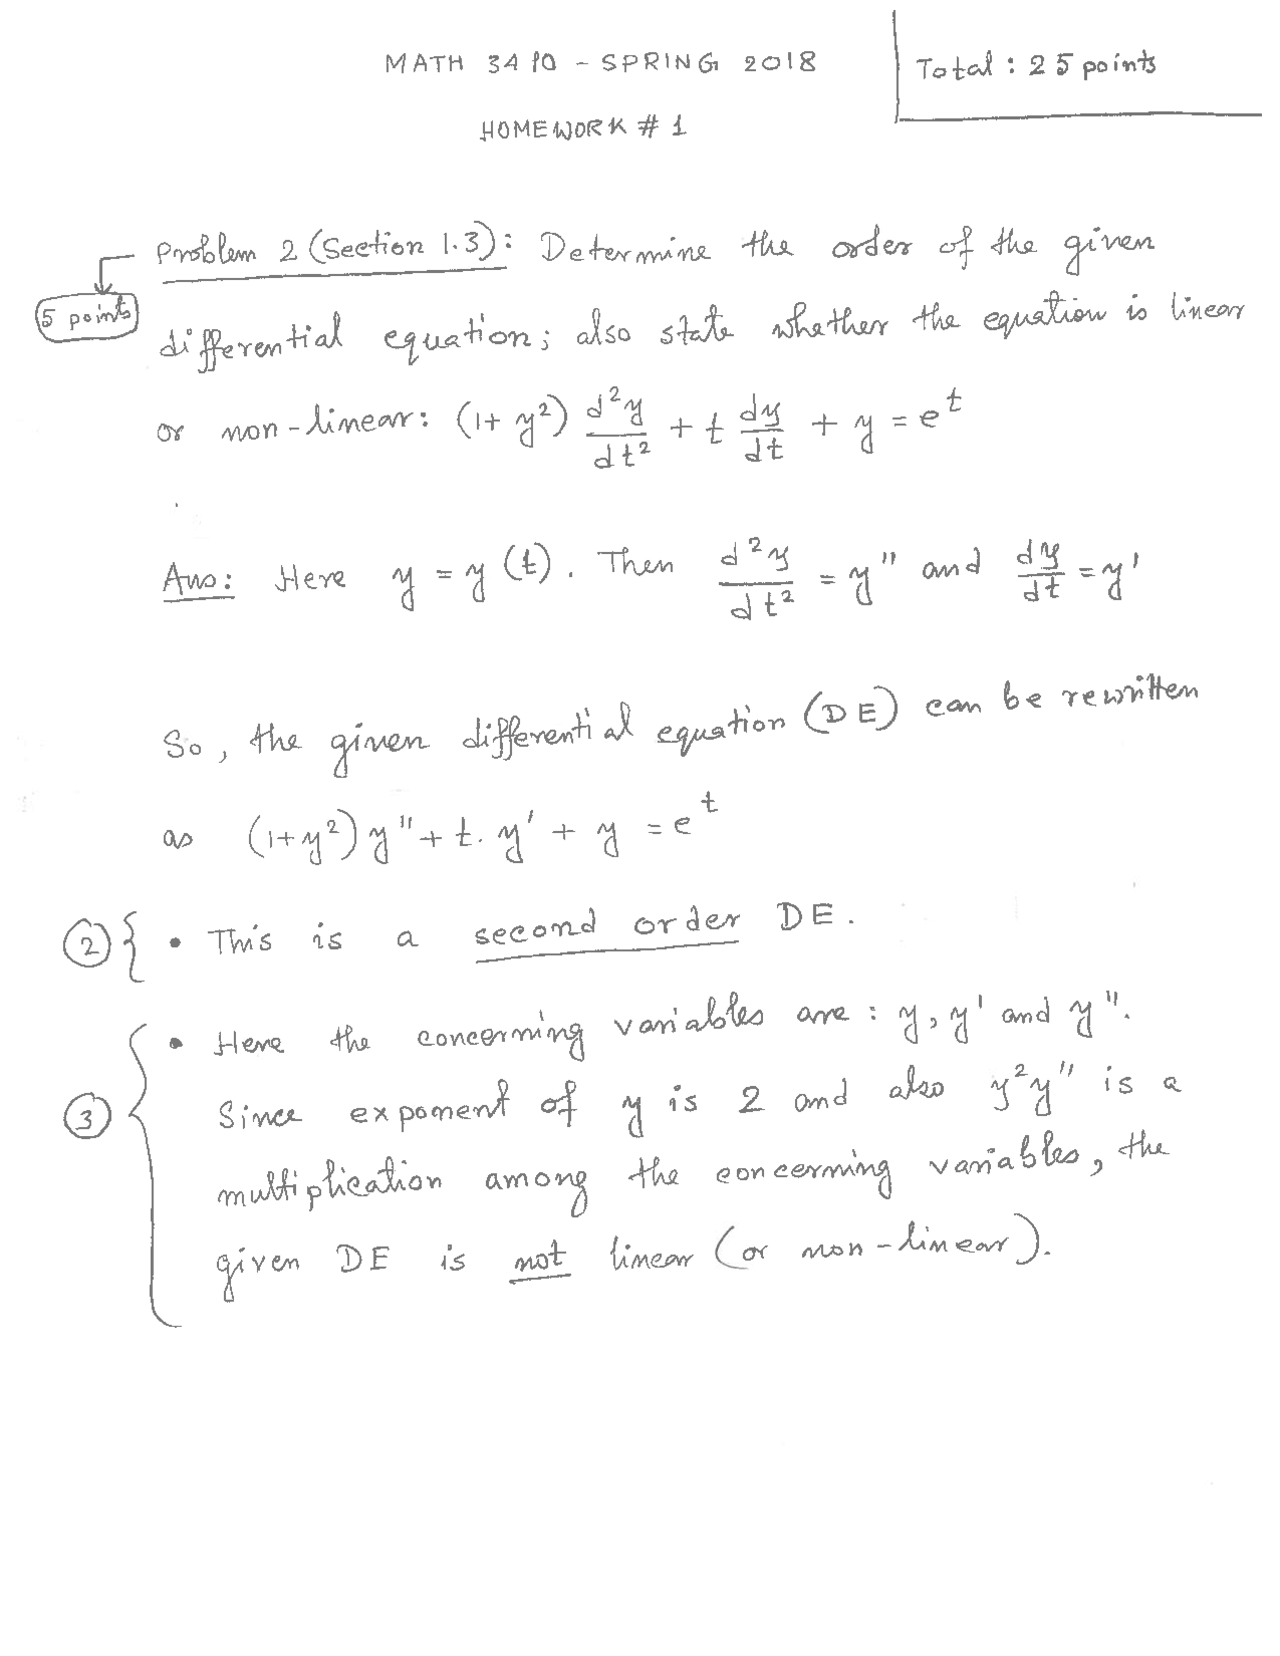 MATH 3410 - SPRING 2018
Total : 25 points
HOMEWORK # 1
Problem 2 (Section 1.3): Determine the order of the given
5 points
differential equation; also state whether the equation is linear
or non-linear: (1+ y²) d²y/dt² + t dy/dt + y = e^t
Ans: Here y = y(t). Then d²y/dt² = y" and dy/dt = y'
So, the given differential equation (DE) can be rewritten
as (1+y²) y" + t. y' + y = e^t
2 { • This is a second order DE.
• Here the concerning variables are : y, y' and y".
3 { Since exponent of y is 2 and also y²y" is a
multiplication among the concerning variables, the
given DE is not linear (or non-linear).